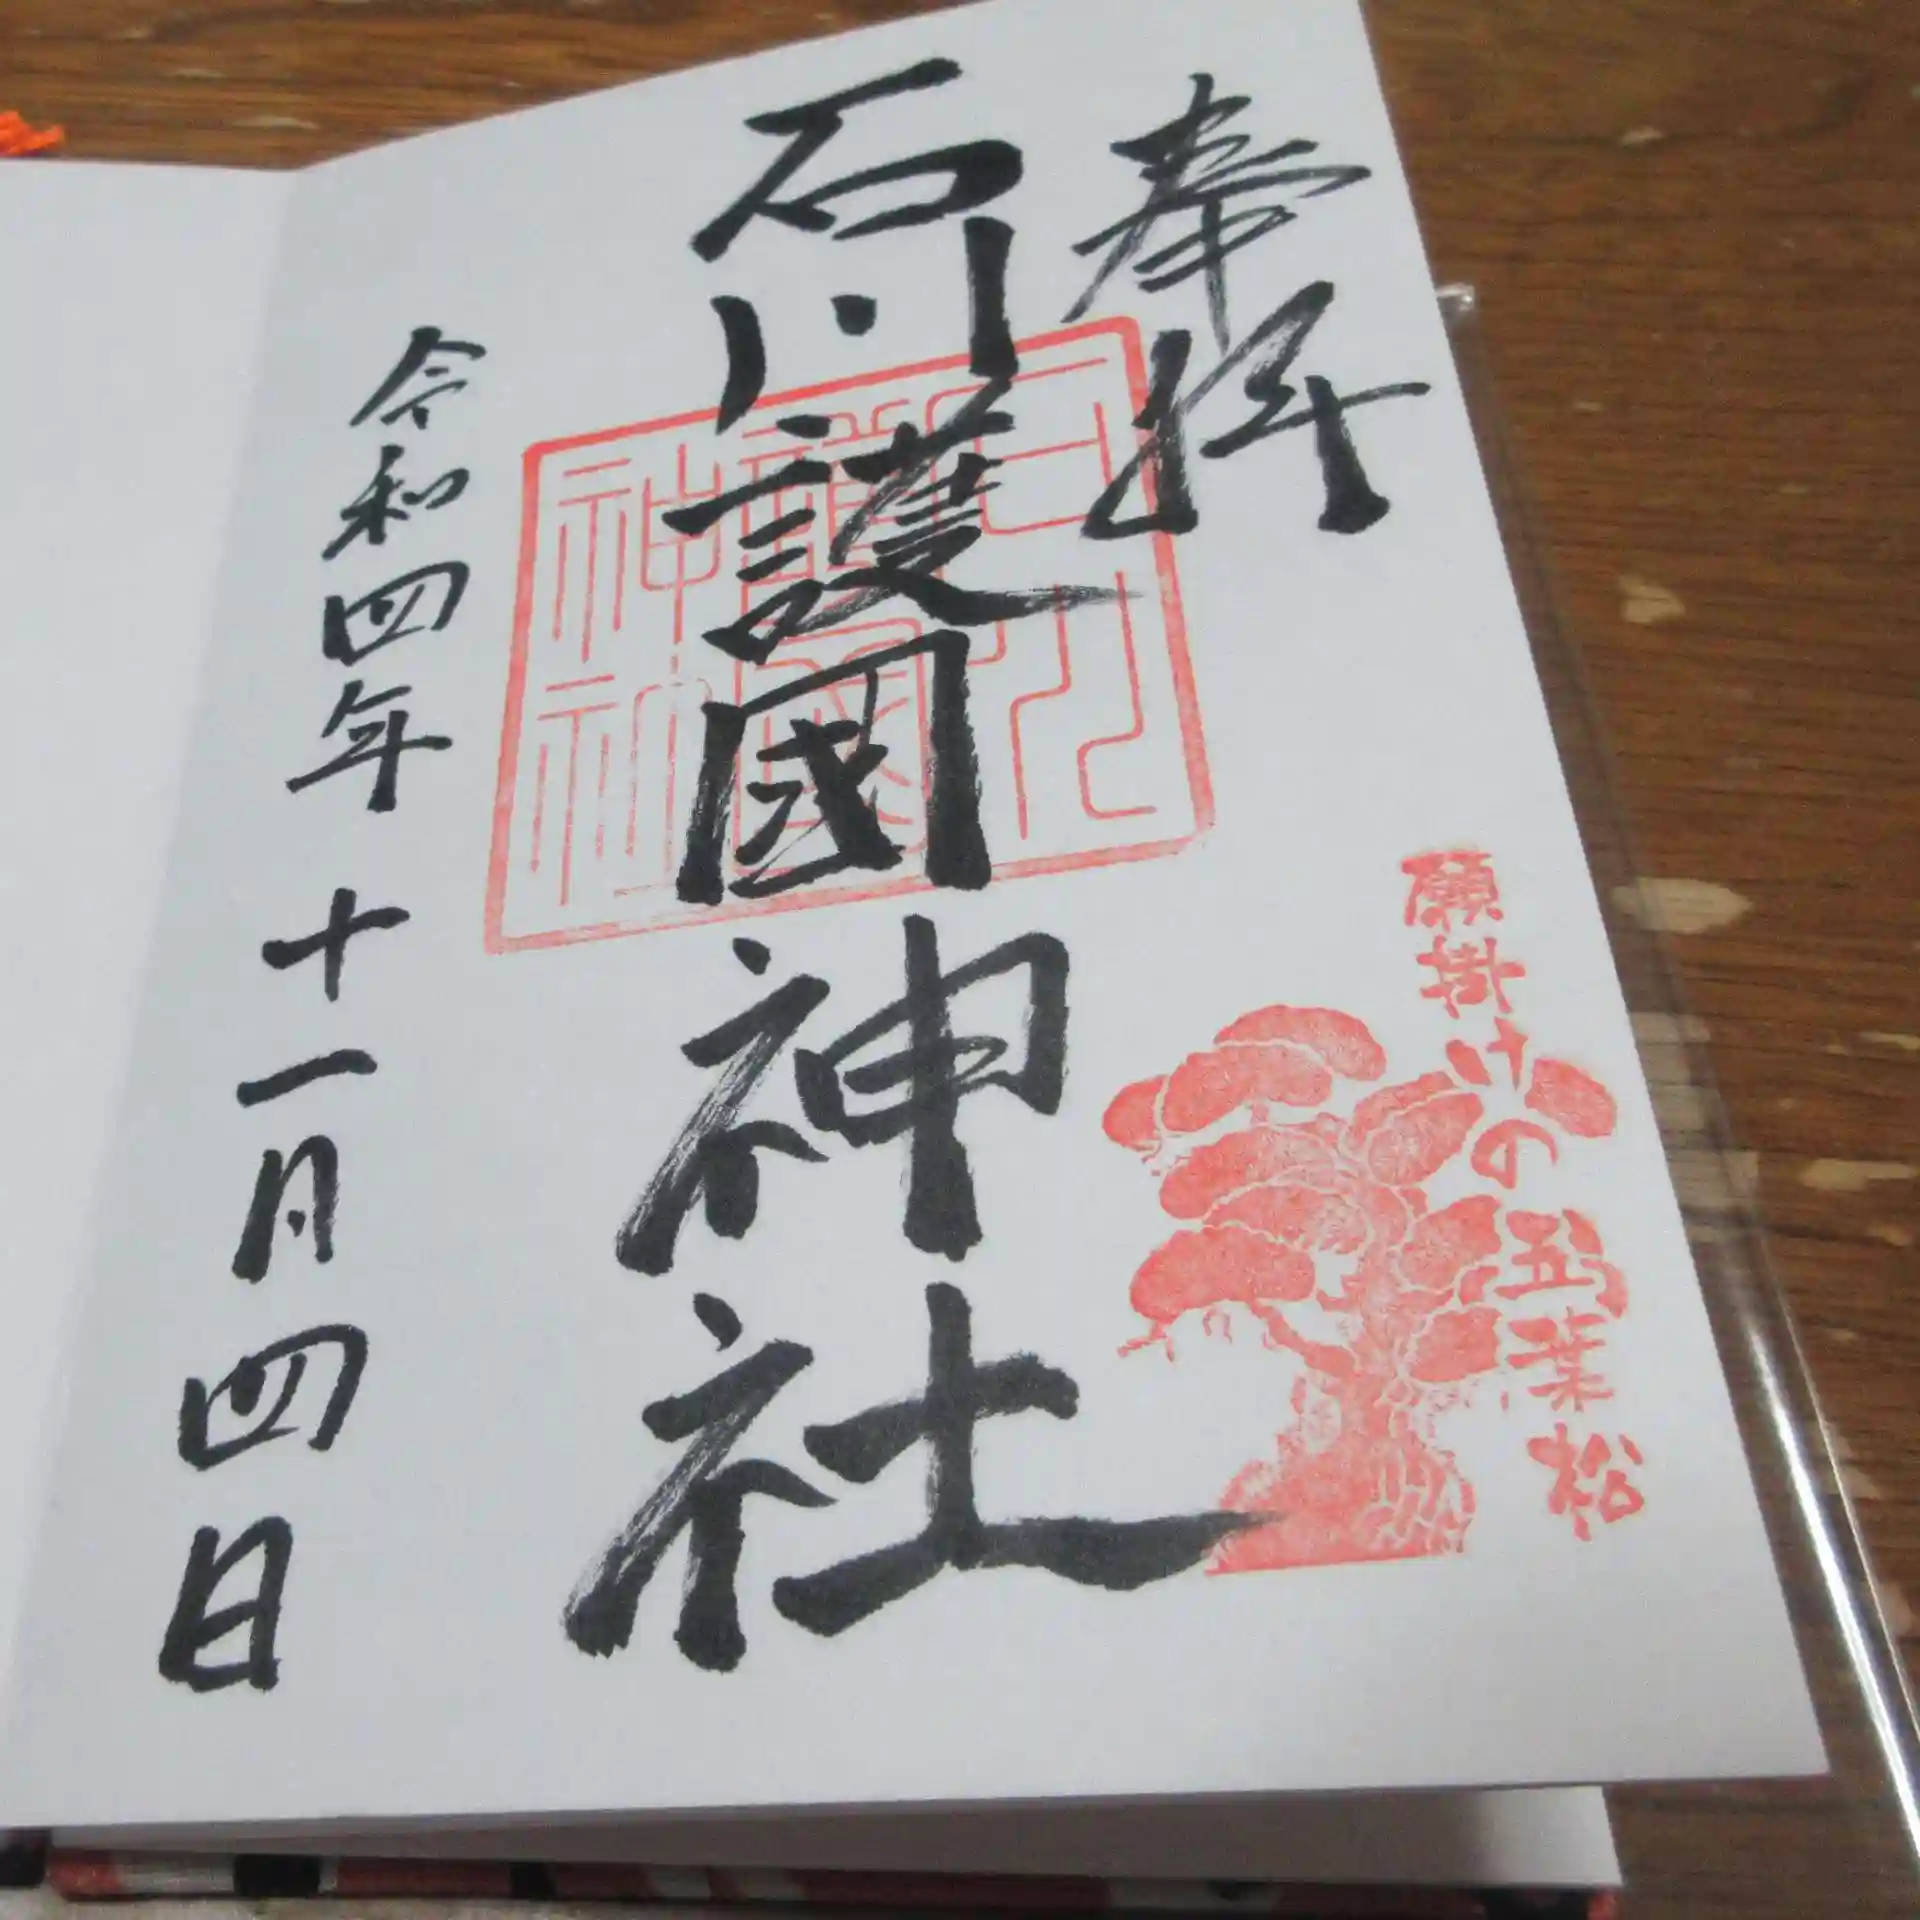 奉拝
願掛けの五葉松
石川護國神社
石川護國神社
令和四年十一月四日